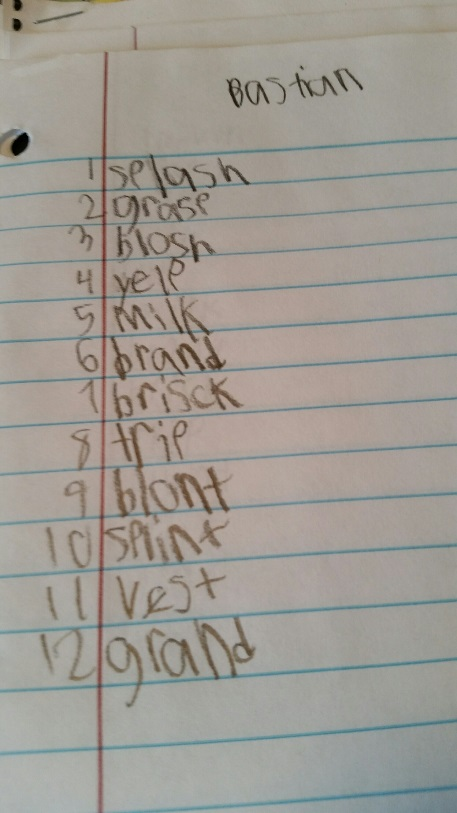 Bastian
1 splash
2 grasp
3 blosh
4 yelp
5 milk
6 brand
7 brisck
8 trip
9 blont
10 splint
11 vest
12 grand